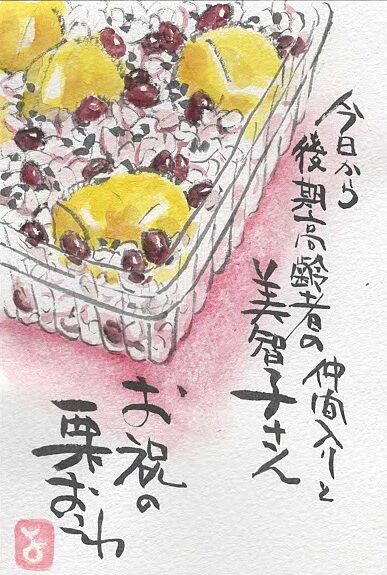 今日から
後期高齢者の仲間入りと
美智子さん
お祝の
栗おこわ